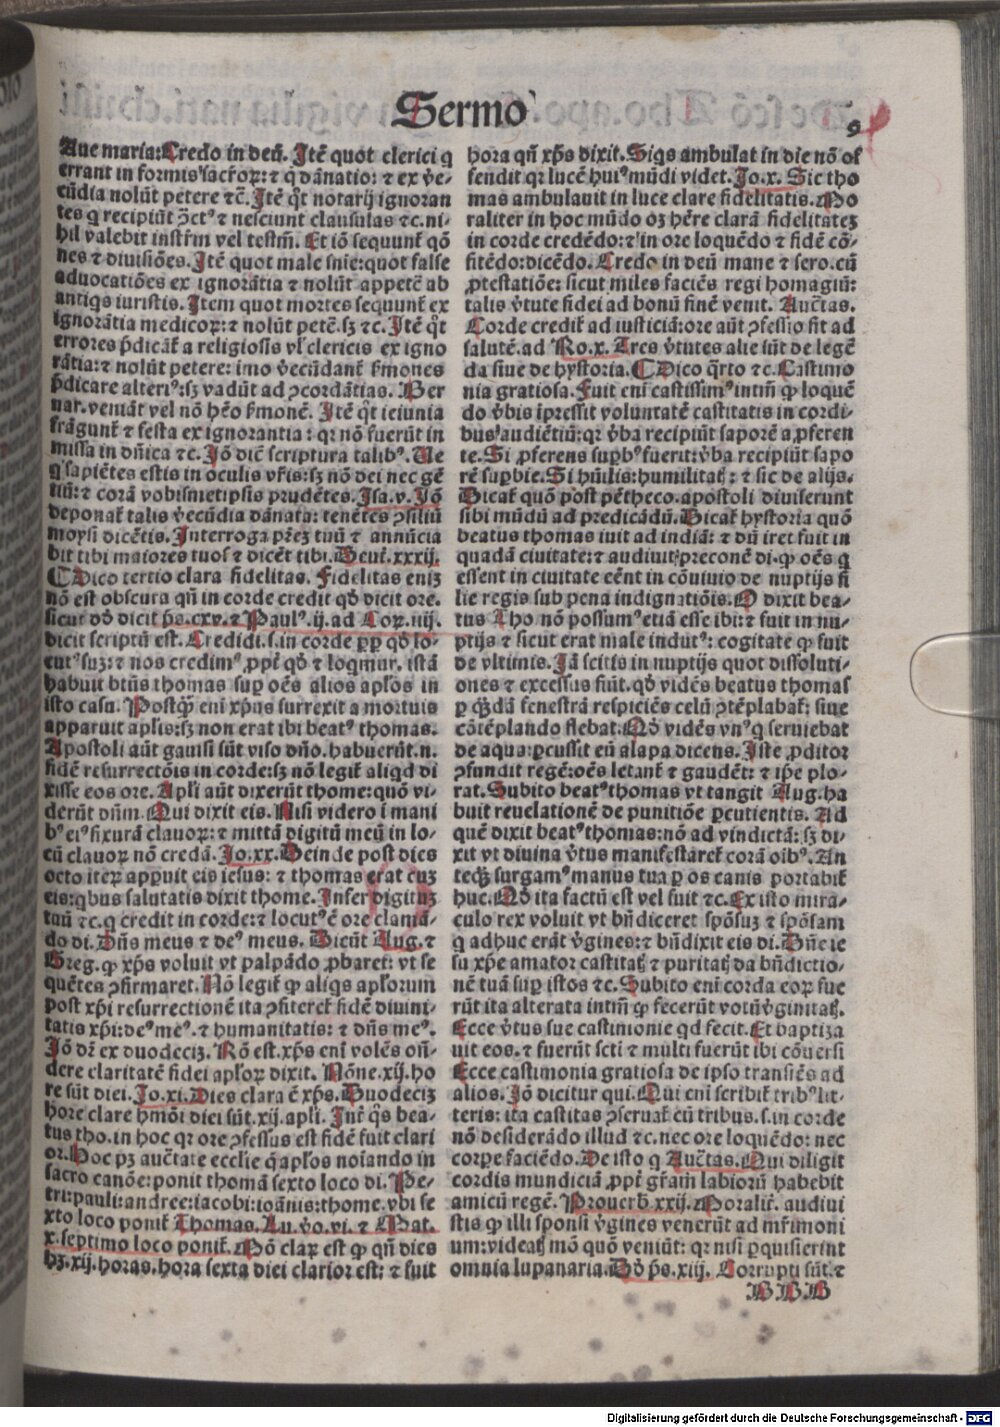 Sermo
9
Aue maria: Credo in deū. Itē quot clerici q
errant in formis sacroꝝ: ⁊ q̄ dānatio: ⁊ ex ve/
cūdia nolūt petere ⁊c̄. Itē q̄t notarij ignoran
tes q recipiūt ꝯct⁹ ⁊ nesciunt clausulas ⁊c. ni/
hil valebit instr̄m vel testm̄. Et iō sequunt̄ qō
nes ⁊ diuisiōes. Itē quot male snie: quot false
aduocatiōes ex ignorātia ⁊ nolūt appetē ab
antiqs iuristis. Item quot mortes sequunt̄ ex
ignorātia medicoꝝ: ⁊ nolūt petē. sꝫ ⁊c. Itē q̄t
errores p̄dicāt̄ a religiosis vl̓ clericis ex igno
rātia: ⁊ nolūt petere: imo vecūdant̄ s̓mones
p̄dicare alteri⁹: sꝫ vadūt ad ꝯcordātias. Ber
nar. veniāt vel nō hēo s̓monē. Itē q̄t ieiunia
frāgunt̄ ⁊ festa ex ignorantia: qꝛ nō fuerūt in
missa in dn̄ica ⁊c. Iō dic̄ scriptura talib⁹. Ue
q̄ sapiētes estis in oculis vr̄is: sꝫ nō dei nec gē
tiū: ⁊ corā vobismetipsis prudētes. Isa. v. Iō
deponat̄ talis vecūdia dānata: tenētes ꝯsiliū
moysi dicētis. Interroga pr̄eꝫ tuū ⁊ annūcia
bit tibi maiores tuos ⁊ dicēt tibi. Deut. xxxij.
¶ Dico tertio clara fidelitas. Fidelitas enīꝫ
nō est obscura qn̄ in corde credit qd̓ dicit ore.
sicut dd̓ dicit ps̄. cxv. ⁊ Paul⁹. ij. ad Coꝝ. iiij.
dicit scriptū est. Credidi. s. in corde ꝓp̄ qd̓ lo/
cut⁹ suꝫ: ⁊ nos credim⁹ ꝓpt̄ qd̓ ⁊ loqmur. istā
habuit btūs thomas sup oēs alios apl̓os in
isto casu. Postq̄ eni xp̄us surrexit a mortuis
apparuit apl̓is: sꝫ non erat ibi beat⁹ thomas.
Apostoli aūt gauisi sūt viso dn̄o. habuerūt. n.
fidē resurrectōis in corde: sꝫ nō legit̄ aliqd di
xisse eos ore. Apl̓i aūt dixerūt thome: quō vi/
derūt dn̄m. Qui dixit eis. Nisi videro ī mani
b⁹ ei⁹ fixurā clauoꝝ: ⁊ mittā digitū meū in lo/
cū clauoꝝ nō credā. Io. xx. Deinde post dies
octo iteꝝ appuit eis iesus: ⁊ thomas erat cuꝫ
eis: qbus salutatis dixit thome. Infer digituꝫ
tuū ⁊c. q credit in corde: ⁊ locut⁹ ē ore clamā/
do di. Dn̄s meus ⁊ de⁹ meus. Dicūt Aug. ⁊
Greg. ꝙ xp̄s voluit vt palpādo ꝓbaret: vt se
quētes ꝯfirmaret. Nō legit̄ ꝙ aliqs apl̓orum
post xp̄i resurrectionē ita ꝯfiteret̄ fidē diuini/
tatis xp̄i: de⁹ me⁹. ⁊ humanitatis: ⁊ dn̄s me⁹.
Iō dꝛ̄ ex duodeciꝫ. Rō est. xp̄s eni volēs oñ/
dere claritatē fidei apl̓oꝝ dixit. Nōne. xij. ho
re sūt diei. Io. xi. Dies clara ē xp̄s. Duodeciꝫ
hore clare hmōi diei sūt. xij. apl̓i. Int̄ q̄s bea/
tus tho. in hoc qꝛ ore ꝯfessus est fidē fuit clari
or. Hoc pꝫ auc̄tate ecclie q̄ apl̓os noīando in
sacro canōe: ponit thomā sexto loco di. Pe/
tri: pauli: andree: iacobi: ioānis: thome. vbi se
xto loco ponit̄ Thomas. Lu. v̓o. vi. ⁊ Mat.
x. septimo loco ponit̄. Mō claꝝ est ꝙ qn̄ dies
hꝫ. xij. horas. hora sexta diei clarior est: ⁊ fuit
hora qn̄ xp̄s dixit. Siqs ambulat in die nō of
fendit qꝛ lucē hui⁹ mūdi videt. Io. x. Sic tho
mas ambulauit in luce clare fidelitatis. Mo
raliter in hoc mūdo oꝫ hēre clarā fidelitateꝫ
in corde credēdo: ⁊ in ore loquēdo ⁊ fidē cō/
fitēdo: dicēdo. Credo in deū mane ⁊ sero. cū
ꝓtestatiōe: sicut miles faciēs regi homagiū:
talis v̓tute fidei ad bonū finē venit. Auc̄tas.
Corde credit̄ ad iusticiā: ore aūt ꝯfessio fit ad
salutē. ad Ro. x. Tres v̓tutes alie sūt de legē
da siue de hystoria. ¶ Dico q̄rto ⁊c. Castimo
nia gratiosa. Fuit eni castissim⁹ intm̄ ꝙ loquē
do v̓bis īpressit voluntatē castitatis in cordi/
bus audiētiū: qꝛ v̓ba recipiūt saporē a ꝓferen
te. Si ꝓferens supb⁹ fuerit: v̓ba recipiūt sapo
rē supbie. Si hūilis: humilitat̄: ⁊ sic de alijs.
Dicat̄ quō post pētheco. apostoli diuiserunt
sibi mūdū ad predicādū. Dicat̄ hystoria quō
beatus thomas iuit ad indiā: ⁊ dū iret fuit in
quadā ciuitate: ⁊ audiuit preconē di. ꝙ oēs q
essent in ciuitate eēnt in cōuiuio de nuptijs fi
lie regis sub pena indignatiōis. O dixit bea/
tus Tho nō possum⁹ etiā esse ibi: ⁊ fuit in nu/
ptijs ⁊ sicut erat male indut⁹: cogitate ꝙ fuit
de vltimis. Iā scitis in nuptijs quot dissoluti/
ones ⁊ excessus fiūt. qd̓ vidēs beatus thomas
ꝑ q̄ndā fenestrā respiciēs celū ꝯtēplabat̄: siue
cōtēplando flebat. Qd̓ vidēs vn⁹ q seruiebat
de aqua: ꝑcussit eū alapa dicens. Iste ꝓditor
ꝯfundit regē: oēs letant̄ ⁊ gaudēt: ⁊ ip̄e plo/
rat. Subito beat⁹ thomas vt tangit Aug. ha
buit reuelationē de punitiōe ꝑcutientis. Ad
quē dixit beat⁹ thomas: nō ad vindictā: sꝫ di/
xit vt diuina v̓tus manifestaret̄ corā oib⁹. An
teq̄ꝫ surgam⁹ manus tua ꝑ os canis portabit̄
huc. Qd̓ ita factū est vel fuit ⁊c. Ex isto mira/
culo rex voluit vt bn̄diceret spōsuꝫ ⁊ spōsam
q adhuc erāt v̓gines: ⁊ bn̄dixit eis di. Dn̄e ie
su xp̄e amator castitat̄ ⁊ puritat̄ da bn̄dictio/
nē tuā sup istos ⁊c. Subito eni corda eoꝝ fue
rūt ita alterata intm̄ ꝙ fecerūt votū v̓ginitat̄.
Ecce v̓tus sue castimonie qd fecit. Et baptiza
uit eos. ⁊ fuerūt scti ⁊ multi fuerūt ibi cōuersi
Ecce castimonia gratiosa de ipso transiēs ad
alios. Iō dicitur qui. Qui eni scribit̄ trib⁹ lit/
teris: ita castitas ꝯseruat̄ cū tribus. s. in corde
nō desiderādo illud ⁊c. nec ore loquēdo: nec
corpe faciēdo. De isto q Auc̄tas. Qui diligit
cordis mundiciā ꝓpt̄ grām labiorū habebit
amicū regē. Prouerb̓. xxij. Moralit̄. audiui
stis ꝙ illi sponsi v̓gines venerūt ad mr̄imoni
um: videat̄ mō quō veniūt: qꝛ nisi ꝑquisierint
omnia lupanaria. Dd̓ ps̄. xiij. Corrupti sūt. ⁊
BBB
Digitalisierung gefördert durch die Deutsche Forschungsgemeinschaft - DFG